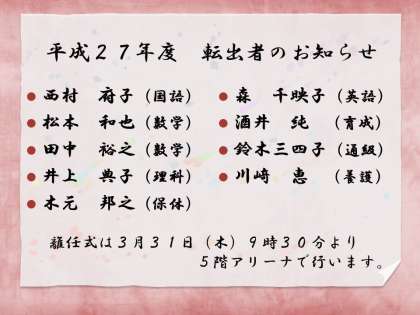 平成27年度　転出者のお知らせ
● 西村　府子（国語）
● 松本　和也（数学）
● 田中　裕之（数学）
● 井上　典子（理科）
● 木元　邦之（保体）
● 森　千映子（英語）
● 酒井　純　（育成）
● 鈴木三四子（通級）
● 川﨑　恵　（養護）
離任式は3月31日（木）9時30分より
5階アリーナで行います。